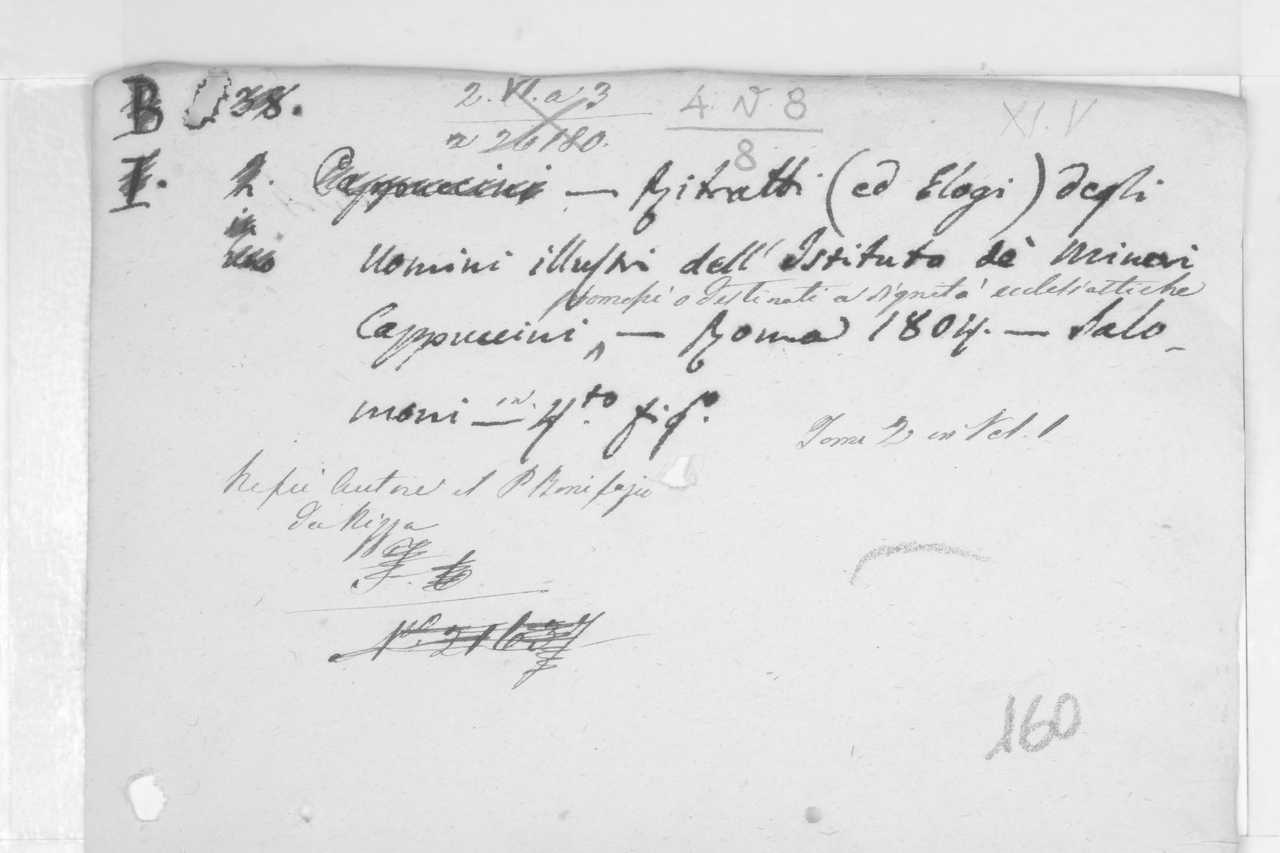 B 38.
2. VI. a 3
4. N. 8
XI. V
a 26 180.
8
I. 2. Cappuccini — Ritratti (ed Elogi) degli
in
uno
Uomini illustri dell' Istituto de' Minori
promossi o destinati a dignità ecclesiastiche
Cappuccini ^ — Roma 1804. — Salo-
moni — in 4.to fig.o
Tomi 2 in Vol. 1
Ne fu Autore il P Bonifazio
da Nizza
160